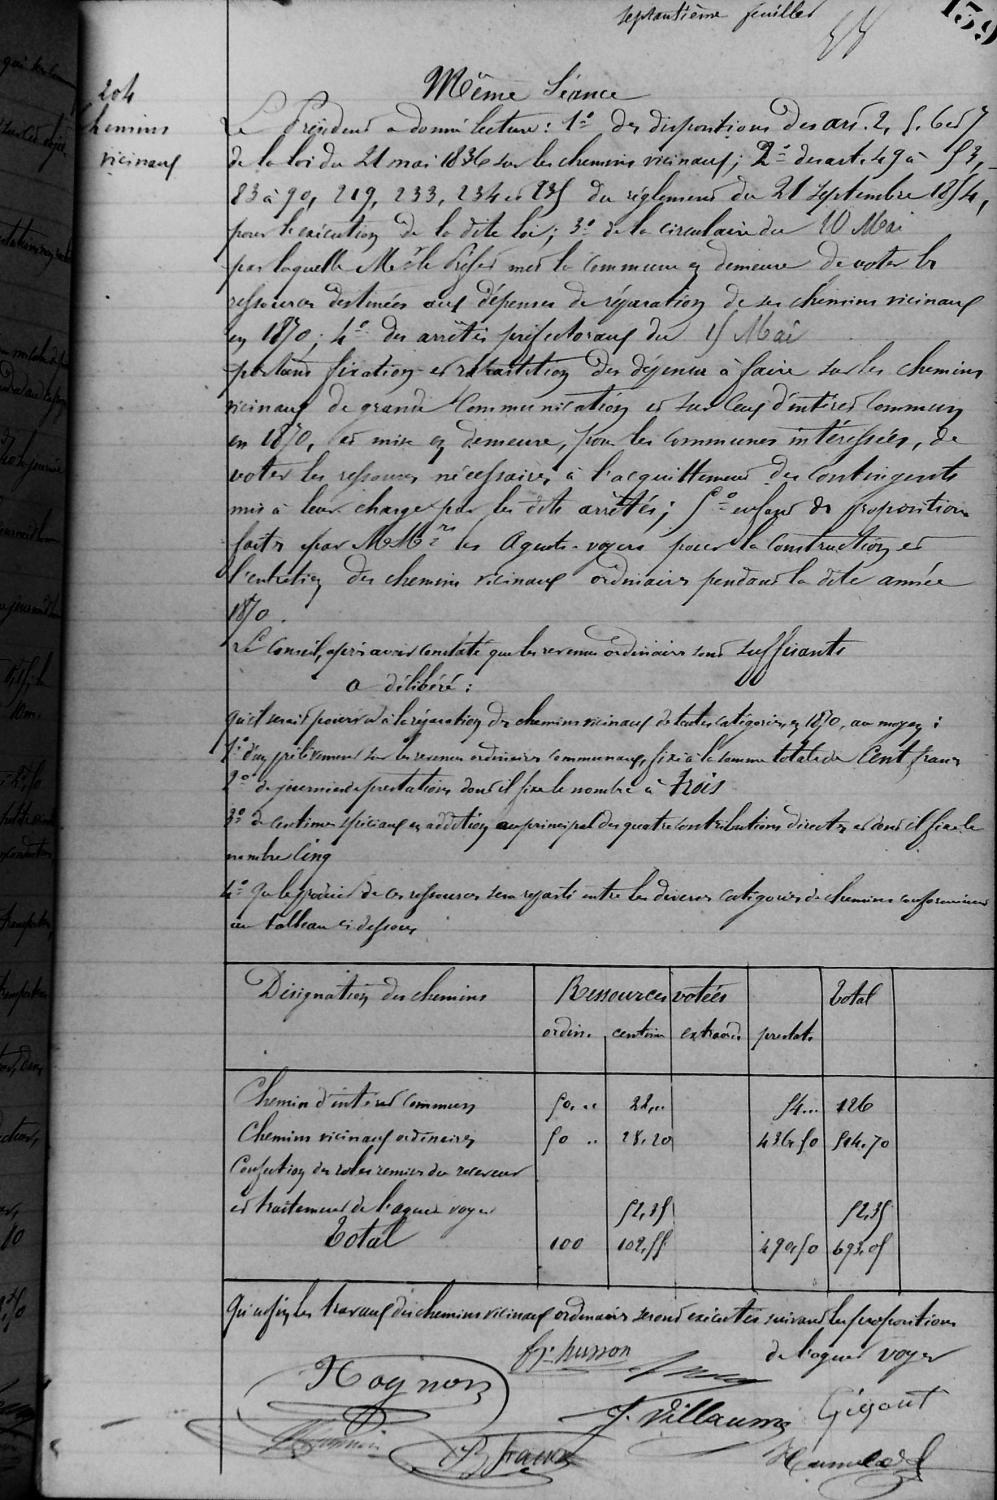 septantième feuillet
139
204
chemins
vicinaux
Même Séance
Le Président a donné lecture : 1º des dispositions des art. 2, 5, 6 et 7
de la loi du 21 mai 1836 sur les chemins vicinaux ; 2º des art. 49 à 53,
83 à 90, 219, 233, 234 et 235 du règlement du 21 Septembre 1854,
pour l'exécution de la dite loi ; 3º de la circulaire du 10 Mai
par laquelle Mr le Préfet met la commune en demeure de voter les
ressources destinées aux dépenses de réparation de ses chemins vicinaux
en 1870 ; 4º des arrêtés préfectoraux du 15 Mai
portant fixation et répartition des dépenses à faire sur les chemins
vicinaux de grande Communication et sur ceux d'intérêt Commun
en 1870, et mise en demeure, pour les communes intéressées, de
voter les ressources nécessaires à l'acquittement des contingents
mis à leur charge par les dits arrêtés ; 5º enfin des propositions
faites par MM.rs les Agents-voyers pour la construction et
l'entretien des chemins vicinaux ordinaires pendant la dite année
1870.
Le Conseil, après avoir constaté que les revenus ordinaires sont suffisants
a délibéré :
qu'il serait pourvu à la réparation des chemins vicinaux de toutes catégories, en 1870, au moyen :
1º d'un prélèvement sur les revenus ordinaires communaux, fixé à la somme totale de Cent francs
2º de journées de prestations dont il fixe le nombre à trois
3º de centimes spéciaux en addition au principal des quatre contributions directes et dont il fixe le
nombre Cinq
4º Que le produit de ces ressources sera réparti entre les diverses catégories de chemins conformément
au tableau ci dessous
Désignation des chemins Ressources votées total
ordin. centim extraord. prestat.
Chemin d'intérêt commun 50. .. 22,.. 54... 126
Chemins vicinaux ordinaires 50 .. 28.20 436.50 514.70
Confection des rôles remises du receveur
et traitement de l'agent voyer 52,35 52,35
Total 100 102,55 490,50 693.05
Qu'enfin les travaux des chemins vicinaux ordinaires seront exécutés suivant les propositions
de l'agent voyer
Fr. husson
Hognon
J. Villaume
Gigout